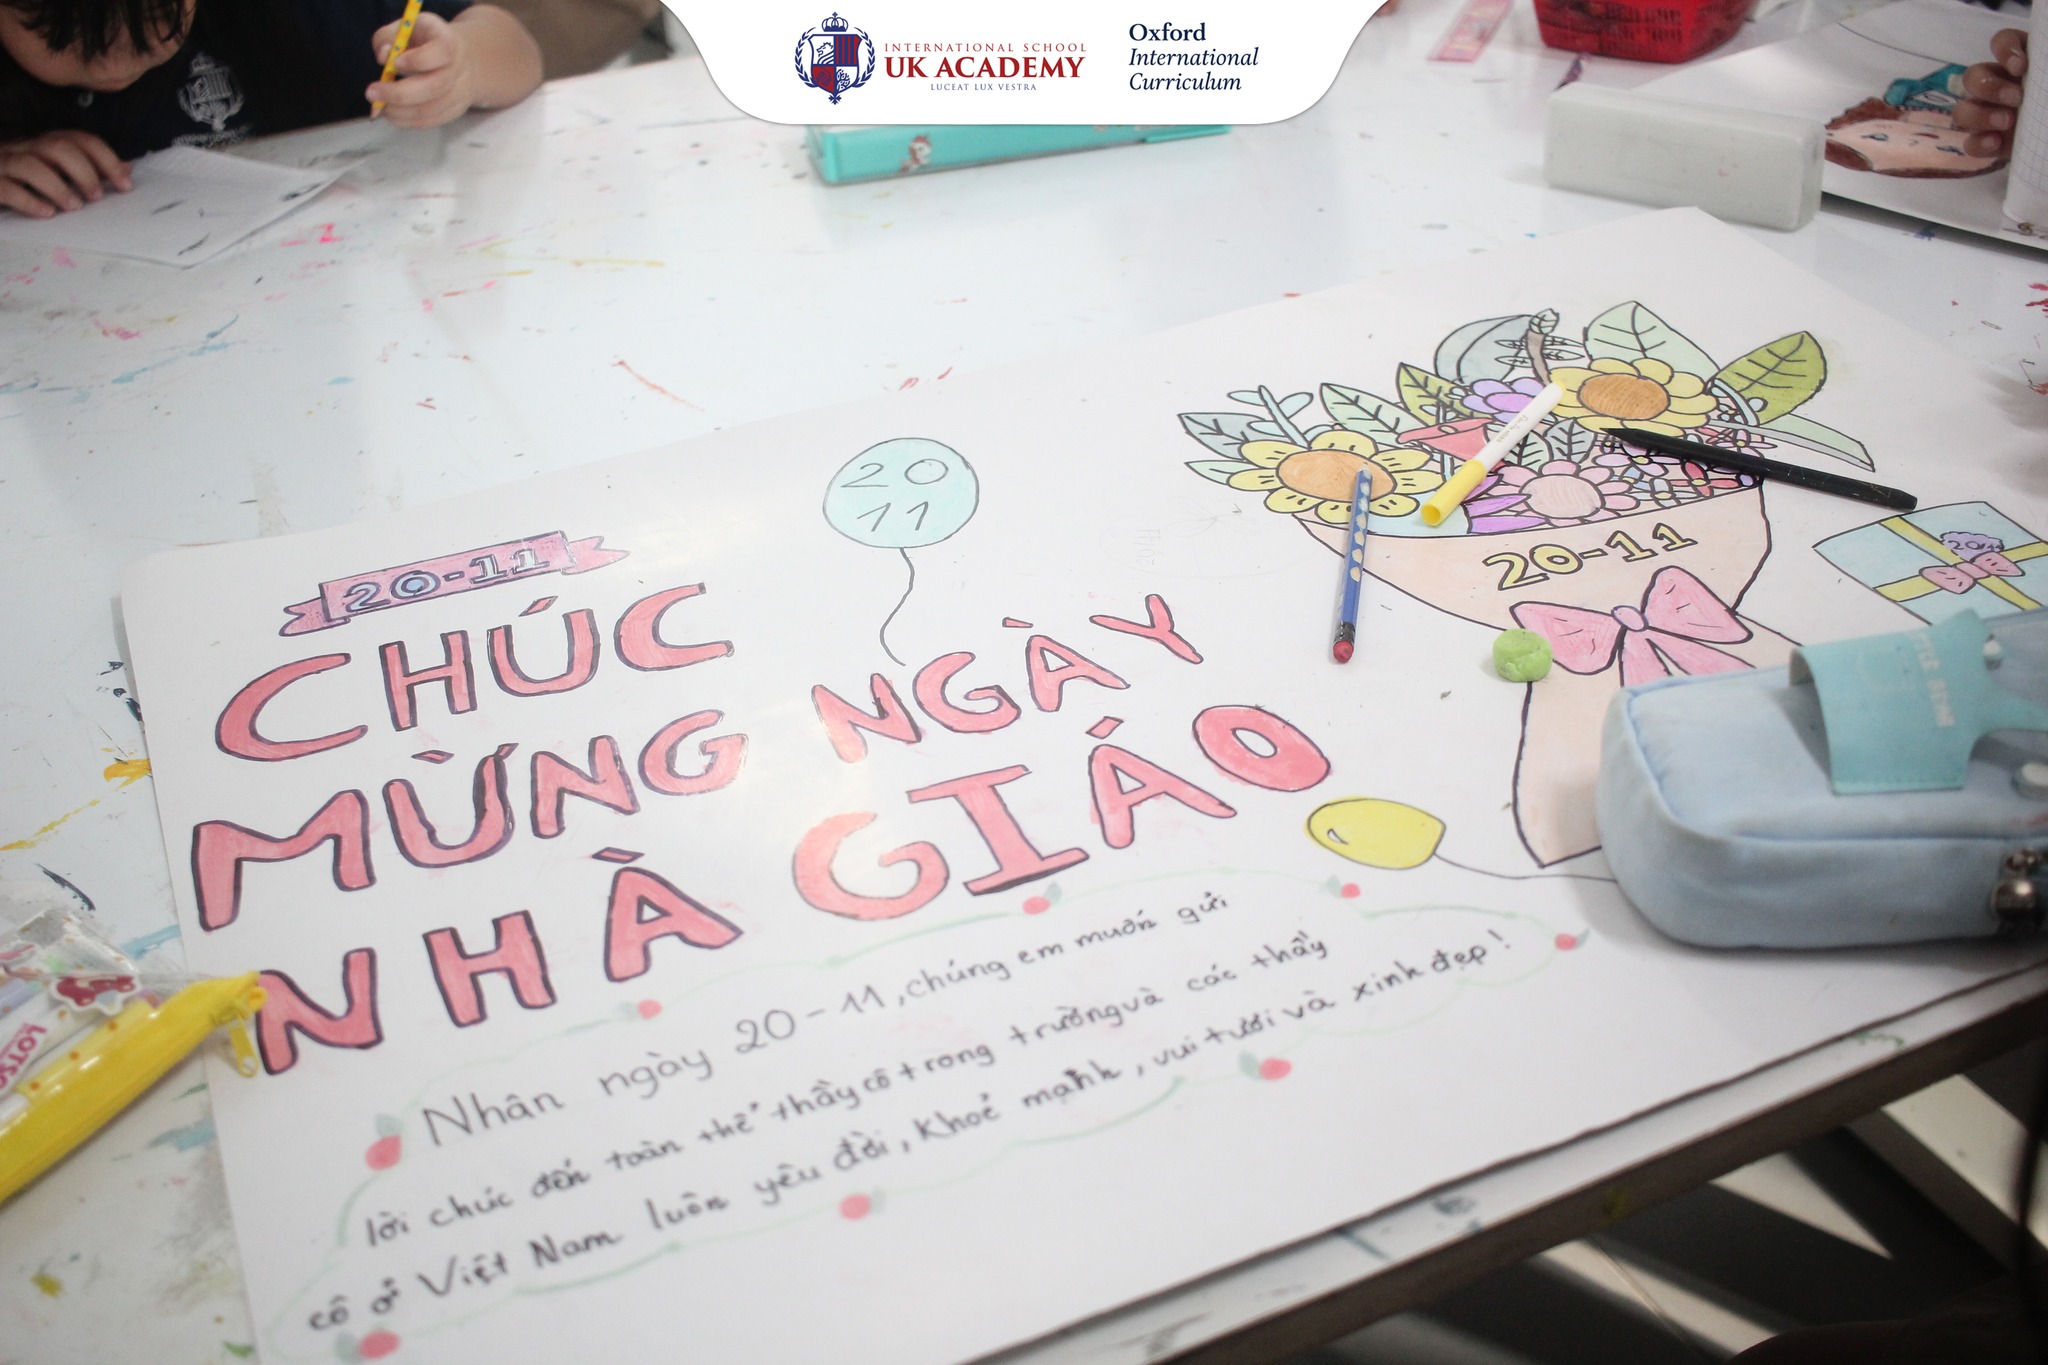 INTERNATIONAL SCHOOL
UK ACADEMY
LUCEAT LUX VESTRA
Oxford
International
Curriculum
20-11
CHÚC
MỪNG NGÀY
NHÀ GIÁO
20
11
20-11
2011
Nhân ngày 20-11, chúng em muốn gửi
lời chúc đến toàn thể thầy cô trong trường và các thầy
cô ở Việt Nam luôn yêu đời, khoẻ mạnh, vui tươi và xinh đẹp!
LOTSO